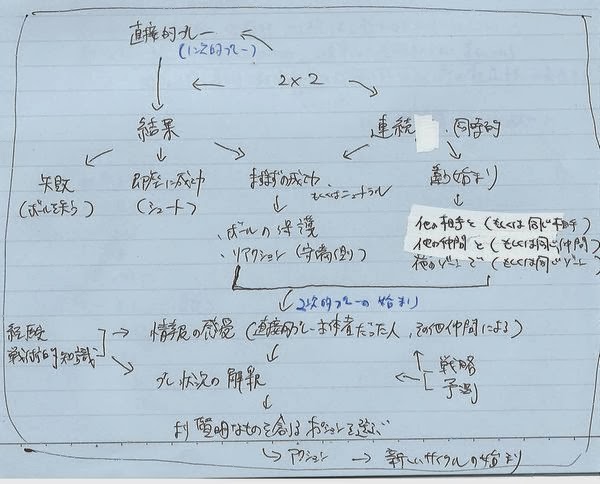 直接的プレー
(1次的プレー)
2×2
結果
連続 、同時的
失敗
(ボールを失う)
即座に成功
(シュート)
まずまずの成功
もしくはニュートラル
新り始まり
・ボールの保護
・リアクション (守備側)
他の相手と (もしくは同じ相手)
他の仲間と (もしくは同じ仲間)
他のゾーンで (もしくは同じゾーン)
2次的プレーの始まり
経験
戦術的知識
情報の感覚 (直接的プレー主体者だった人、その他仲間による)
プレー状況の解釈
戦略
予測
より賢明なものを含むポジションを選ぶ
アクション → 新しいサイクルの始まり